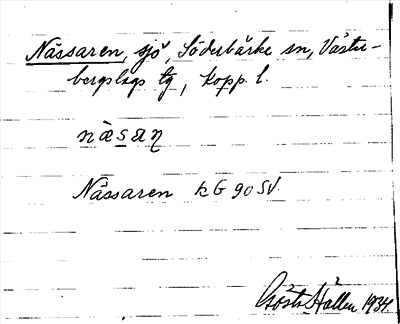 Nässaren, sjö, Söderbärke sn, Väster-
bergslags tg, Kopp. l.
nàsaη
Nässaren kG 90 SV.
Gösta Hallen 1934.